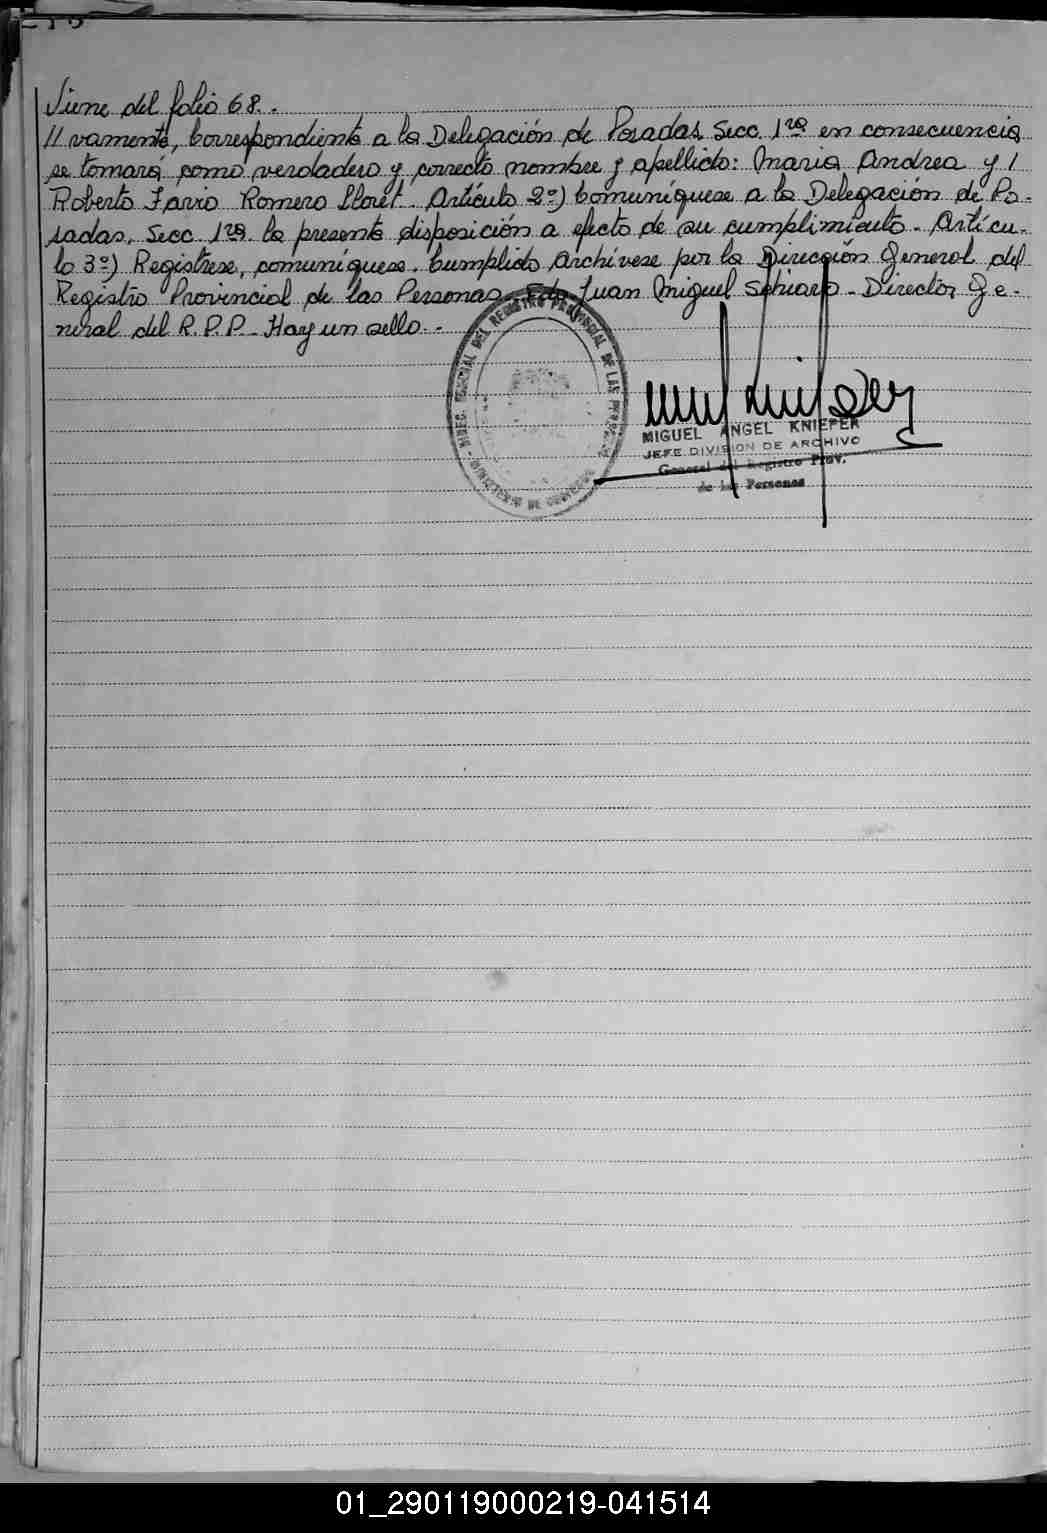 Viene del folio 68.-
// vamente, Correspondiente a la Delegación de Posadas, Secc. 1ra en consecuencia
se tomará como verdadero y correcto nombre y apellido: Maria Andrea y /
Roberto Favio Romero Lloret. Artículo 2º) Comuníquese a la Delegación de Po-
sadas, Secc. 1ra. la presente disposición a efecto de su cumplimiento. - Artícu-
lo 3º) Registrese, comuníquese. Cumplido Archívese por la Dirección General del
Registro Provincial de las Personas. Fdo Juan Miguel Schiaro - Director Ge-
neral del R.P.P. - Hay un sello. -
DIREC. GENERAL DEL REGISTRO PROVINCIAL DE LAS PERSONAS
MINISTERIO DE GOBIERNO
MIGUEL ANGEL KNIEFER
JEFE DIVISION DE ARCHIVO
General del Registro Prov.
de las Personas
01_290119000219-041514